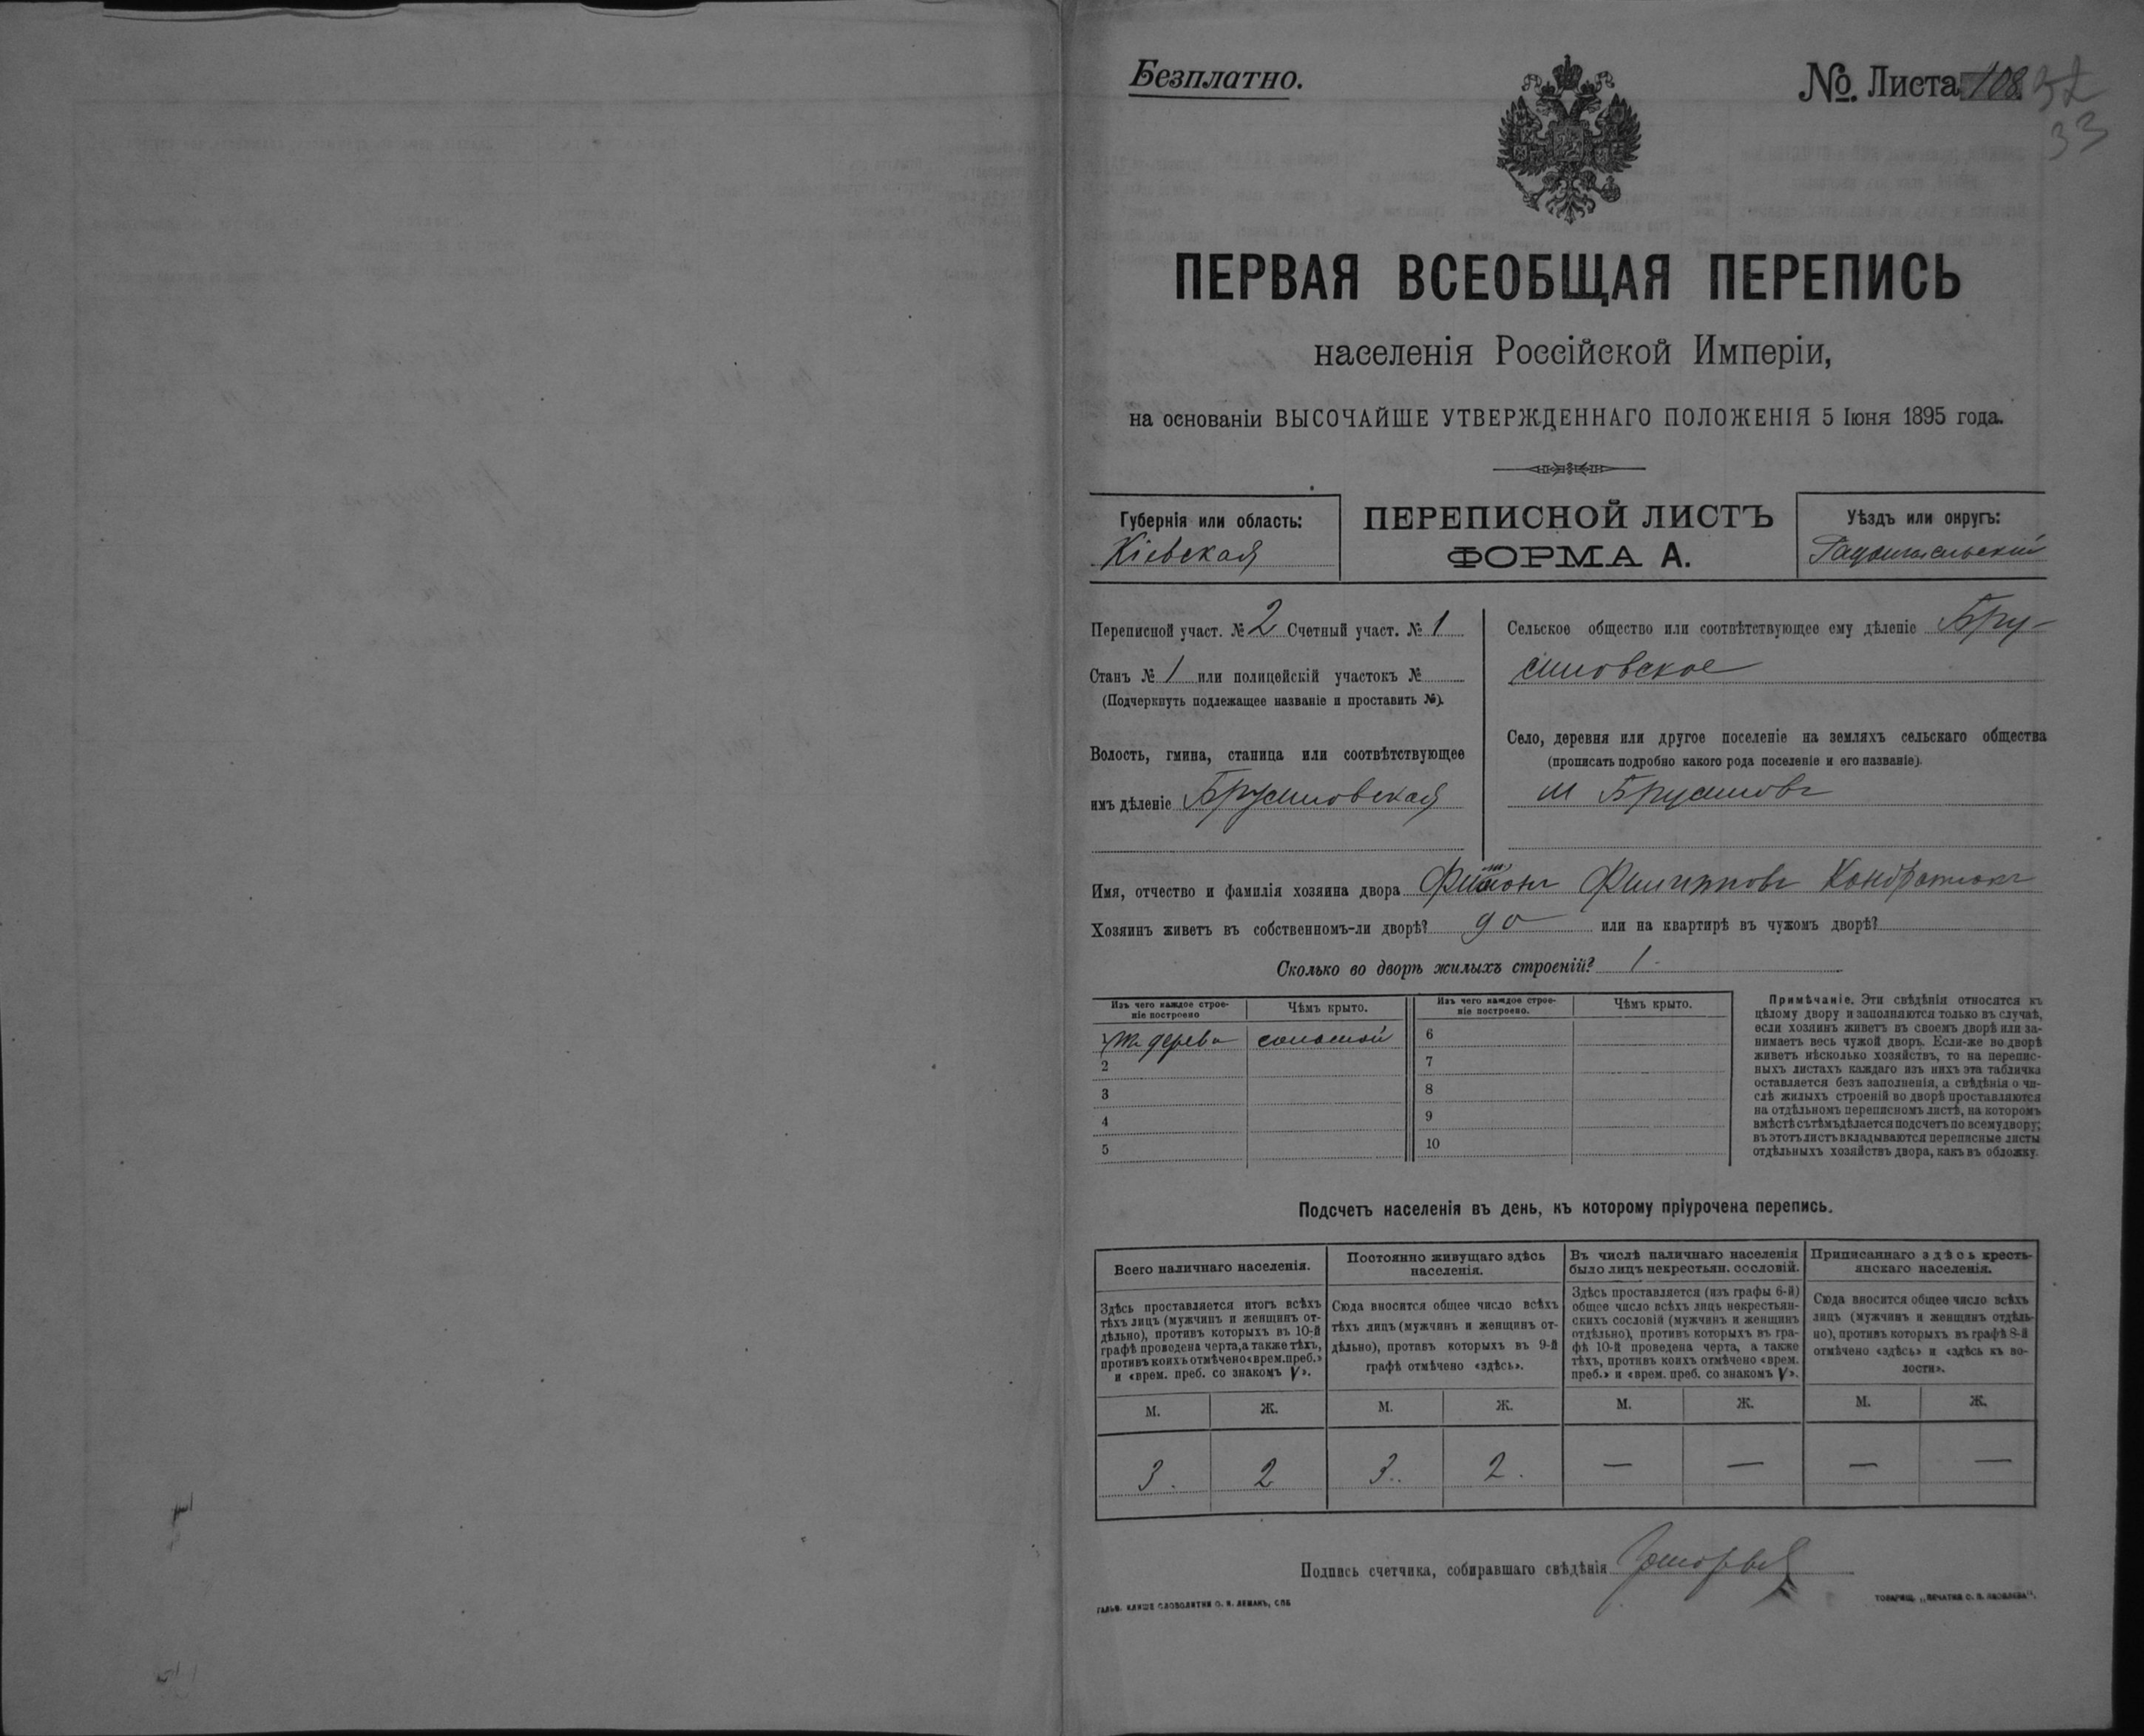 Безплатно.
№. Листа 108. 32
33
ПЕРВАЯ ВСЕОБЩАЯ ПЕРЕПИСЬ
населенія Россійской Имперіи,
на основаніи ВЫСОЧАЙШЕ УТВЕРЖДЕННАГО ПОЛОЖЕНІЯ 5 Іюня 1895 года.
Губернія или область:
Кіевская
ПЕРЕПИСНОЙ ЛИСТЪ
ФОРМА А.
Уѣздъ или округъ:
Радомысльскій
Переписной участ. № 2 Счетный участ. № 1
Станъ № 1 или полицейскій участокъ №
(Подчеркнуть подлежащее названіе и проставить №).
Волость, гмина, станица или соотвѣтствующее
имъ дѣленіе Брусиловская
Сельское общество или соотвѣтствующее ему дѣленіе Бру-
силовское
Село, деревня или другое поселеніе на земляхъ сельскаго общества
(прописать подробно какого рода поселеніе и его названіе).
м Брусиловъ
Имя, отчество и фамилія хозяина двора Филиповъ Кондратюкъ
Хозяинъ живетъ въ собственномъ-ли дворѣ? да или на квартирѣ въ чужомъ дворѣ?
Сколько во дворѣ жилыхъ строеній? 1
Изъ чего каждое строе-
ніе построено
Чѣмъ крыто.
Изъ чего каждое строе-
ніе построено.
Чѣмъ крыто.
1 Изъ дерева соломой
2
3
4
5
6
7
8
9
10
Примѣчаніе. Эти свѣдѣнія относятся къ
цѣлому двору и заполняются только въ случаѣ,
если хозяинъ живетъ въ своемъ дворѣ или за-
нимаетъ весь чужой дворъ. Если-же во дворѣ
живетъ нѣсколько хозяйствъ, то на перепис-
ныхъ листахъ каждаго изъ нихъ эта табличка
оставляется безъ заполненія, а свѣдѣнія о чи-
слѣ жилыхъ строеній во дворѣ проставляются
на отдѣльномъ переписномъ листѣ, на которомъ
вмѣстѣ съ тѣмъ дѣлается подсчетъ по всему двору;
въ этотъ листъ вкладываются переписные листы
отдѣльныхъ хозяйствъ двора, какъ въ обложку.
Подсчетъ населенія въ день, къ которому пріурочена перепись.
Всего наличнаго населенія.
Здѣсь проставляется итогъ всѣхъ
тѣхъ лицъ (мужчинъ и женщинъ от-
дѣльно), противъ которыхъ въ 10-й
графѣ проведена черта, а также тѣхъ,
противъ коихъ отмѣчено «врем. преб.»
и «врем. преб. со знакомъ V».
Постоянно живущаго здѣсь
населенія.
Сюда вносится общее число всѣхъ
тѣхъ лицъ (мужчинъ и женщинъ от-
дѣльно), противъ которыхъ въ 9-й
графѣ отмѣчено «здѣсь».
Въ числѣ наличнаго населенія
было лицъ некрестьян. сословій.
Здѣсь проставляется (изъ графы 6-й)
общее число всѣхъ лицъ некрестьян-
скихъ сословій (мужчинъ и женщинъ
отдѣльно), противъ которыхъ въ гра-
фѣ 10-й проведена черта, а также
тѣхъ, противъ коихъ отмѣчено «врем.
преб.» и «врем. преб. со знакомъ V».
Приписаннаго здѣсь кресть-
янскаго населенія.
Сюда вносится общее число всѣхъ
лицъ (мужчинъ и женщинъ отдѣль-
но), противъ которыхъ въ графѣ 8-й
отмѣчено «здѣсь» и «здѣсь къ во-
лости».
М. Ж. М. Ж. М. Ж. М. Ж.
3. 2 3. 2. — — — —
Подпись счетчика, собиравшаго свѣдѣнія
ГАЛЬВ. КЛИШЕ СЛОВОЛИТНИ О. И. ЛЕМАНЪ, СПБ
ТОВАРИЩ. „ПЕЧАТНЯ С. П. ЯКОВЛЕВА".